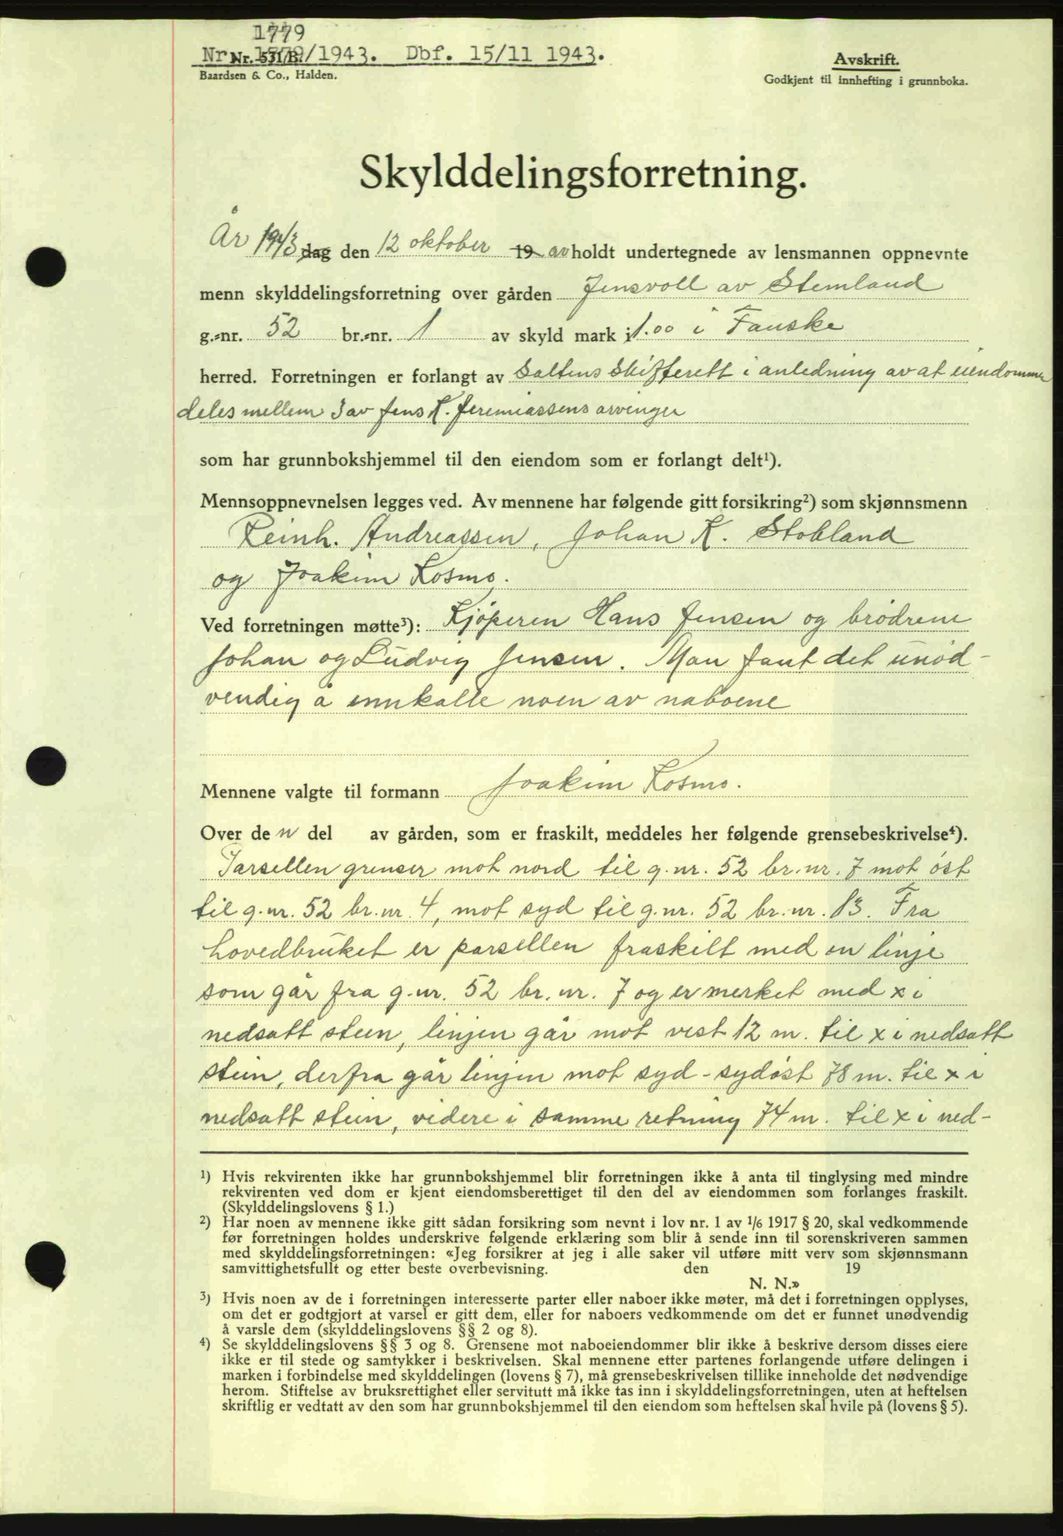 1779
Nr. 1778/1943. Dbf. 15/11 1943.
Nr. 531/B.
Baardsen & Co., Halden.
Avskrift.
Godkjent til innhefting i grunnboka.
Skylddelingsforretning.
År 1943 dag den 12 oktober 19 avholdt undertegnede av lensmannen oppnevnte
menn skylddelingsforretning over gården Jensvoll av Stemland
g.-nr. 52 br.-nr. 1 av skyld mark 1.00 i Fauske
herred. Forretningen er forlangt av Saltens Skifterett i anledning av at eiendommen
deles mellem 3 av Jens K. Jeremiassens arvinger
som har grunnbokshjemmel til den eiendom som er forlangt delt¹).
Mennsoppnevnelsen legges ved. Av mennene har følgende gitt forsikring²) som skjønnsmenn
Reinh. Andreassen, Johan K. Stokland
og Joakim Kosmo.
Ved forretningen møtte³): Kjøperen Hans Jensen og brødrene
Johan og Ludvig Jensen. Man fant det unød-
vendig å innkalle noen av naboene
Mennene valgte til formann Joakim Kosmo.
Over den del av gården, som er fraskilt, meddeles her følgende grensebeskrivelse⁴).
Parsellen grenser mot nord til g.nr. 52 br.nr. 7 mot øst
til g.nr. 52 br.nr. 4, mot syd til g.nr. 52 br.nr. 13. Fra
hovedbruket er parsellen fraskilt med en linje
som går fra g.nr. 52 br.nr. 7 og er merket med x i
nedsatt stein, linjen går mot vest 12 m. til x i nedsatt
stein, derfra går linjen mot syd-sydøst 78 m. til x i
nedsatt stein, videre i samme retning 74 m. til x i ned-
¹) Hvis rekvirenten ikke har grunnbokshjemmel blir forretningen ikke å anta til tinglysing med mindre
rekvirenten ved dom er kjent eiendomsberettiget til den del av eiendommen som forlanges fraskilt.
(Skylddelingslovens § 1.)
²) Har noen av mennene ikke gitt sådan forsikring som nevnt i lov nr. 1 av 1/6 1917 § 20, skal vedkommende
før forretningen holdes underskrive følgende erklæring som blir å sende inn til sorenskriveren sammen
med skylddelingsforretningen: «Jeg forsikrer at jeg i alle saker vil utføre mitt verv som skjønnsmann
samvittighetsfullt og etter beste overbevisning. den 19
N. N.»
³) Hvis noen av de i forretningen interesserte parter eller naboer ikke møter, må det i forretningen opplyses,
om det er godtgjort at varsel er gitt dem, eller for naboers vedkommende om det er funnet unødvendig
å varsle dem (skylddelingslovens §§ 2 og 8).
⁴) Se skylddelingslovens §§ 3 og 8. Grensene mot naboeiendommer blir ikke å beskrive dersom disses eiere
ikke er til stede og samtykker i beskrivelsen. Skal mennene etter partenes forlangende utføre delingen i
marken i forbindelse med skylddelingen (lovens § 7), må grensebeskrivelsen tillike inneholde det nødvendige
herom. Stiftelse av bruksrettighet eller servitutt må ikke tas inn i skylddelingsforretningen, uten at heftelsen
skriftlig er vedtatt av den som har grunnbokshjemmel til den eiendom som heftelsen skal hvile på (lovens § 5).